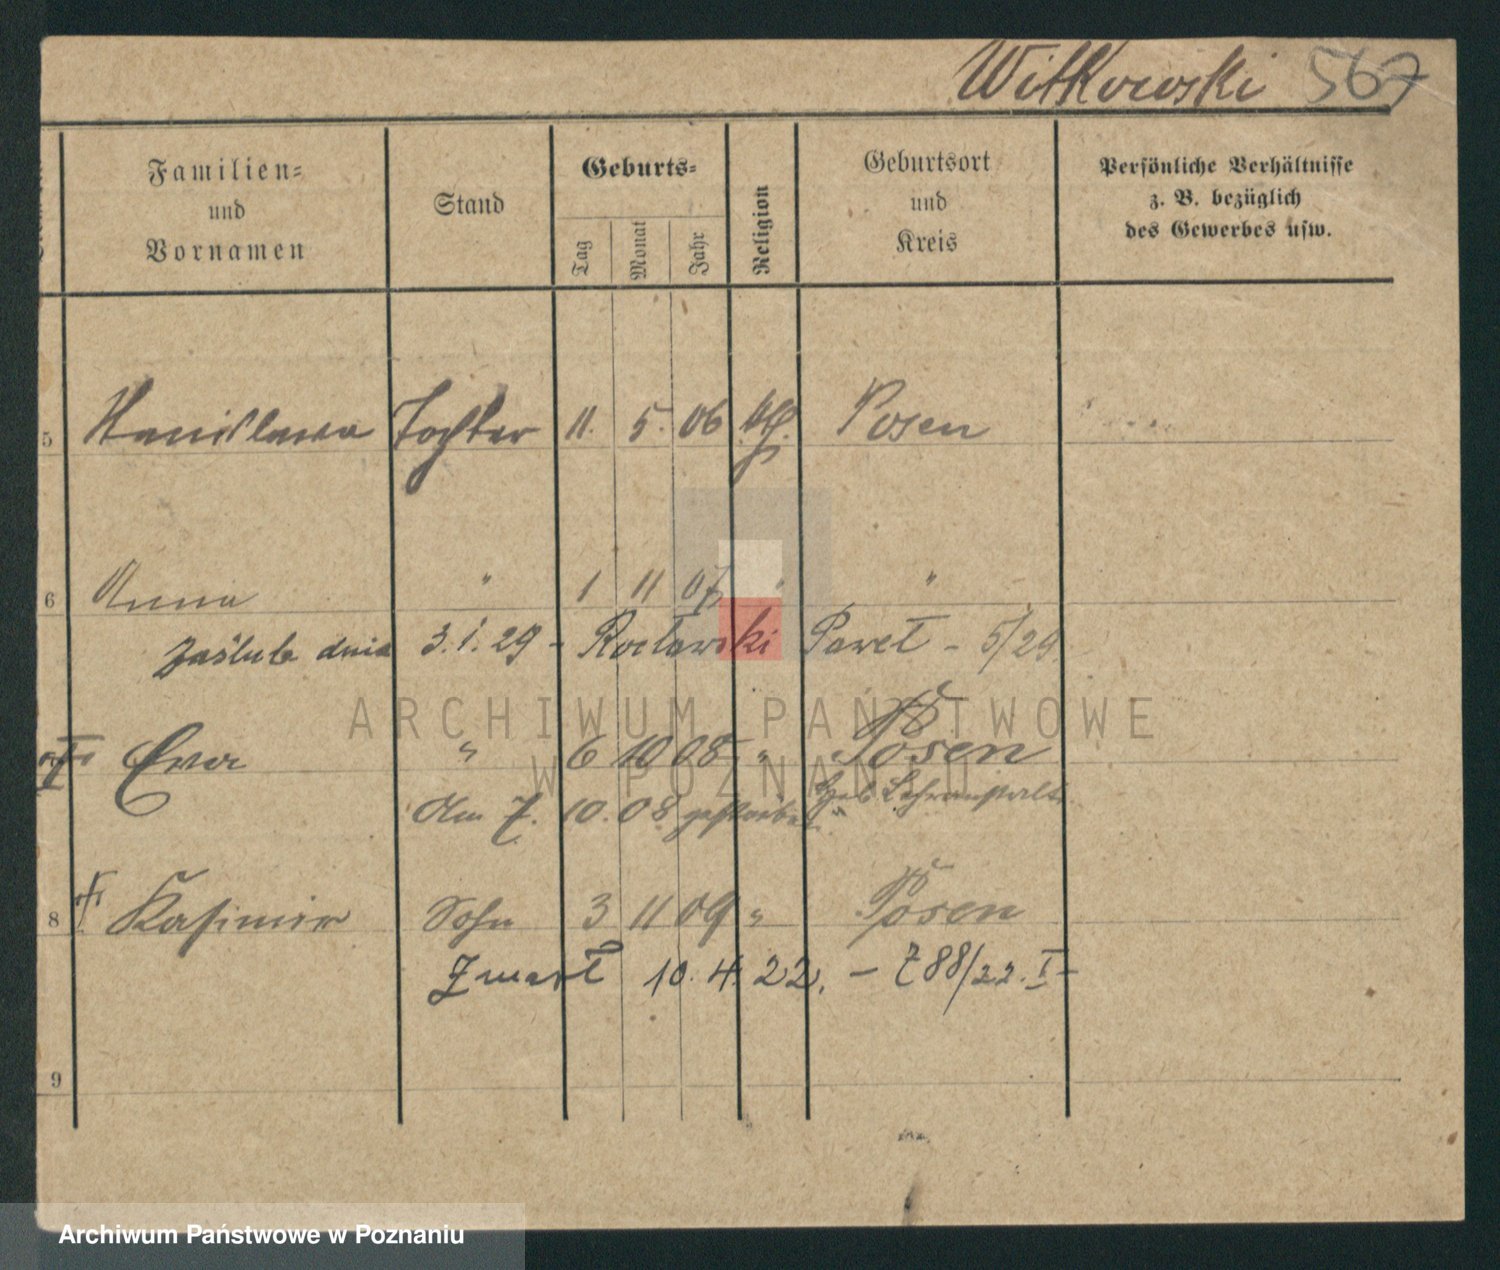 Witkowski 567
Familien= und Vornamen
Stand
Geburts=
Tag
Monat
Jahr
Religion
Geburtsort und Kreis
Persönliche Verhältnisse z. B. bezüglich des Gewerbes usw.
5 Stanislawa Tochter 11. 5. 06 Posen
6 Anna " 1 11 07 " "
zaślub. dnia 3.1.29 - Pawel - 5/29
Eva " 6 10 08 " Posen
Am 7. 10. 08 gestorben Heb. Lehranstalt
8 Kasimir Sohn 3 11 09 " Posen
Zmarł 10. 4. 22. - 788/22. I -
9
ARCHIWUM PAŃSTWOWE
W POZNANIU
Archiwum Państwowe w Poznaniu